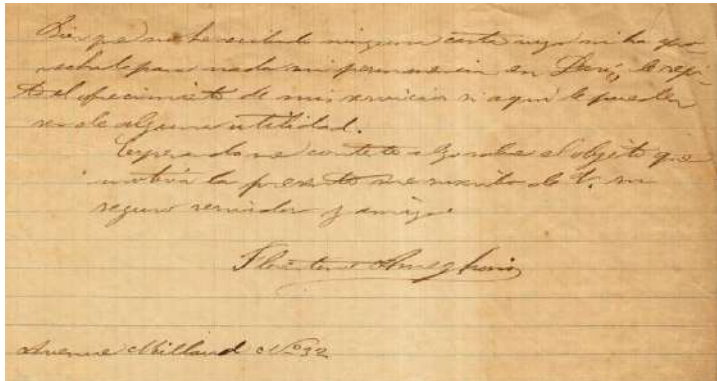 Bien que no he recibido ninguna carta suya ni ha apro-
vechado para nada mi permanencia en Paris, le repi-
to el ofrecimiento de mis servicios si aquí le pueden
ser de alguna utilidad.
Esperando me conteste algo sobre el objeto que
motiva la presente me suscribo de V. su
seguro servidor y amigo
Florentino Ameghino
Avenue Millaud No 32